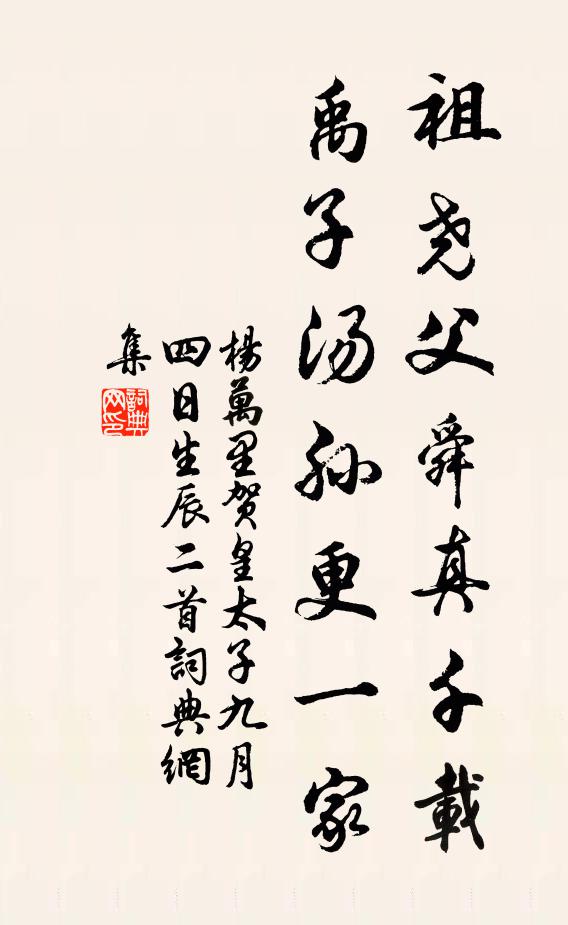 祖尧父舜真千載
禹子汤孙更一家
楊萬里贺皇太子九月
四日生辰二首詞典網
集
詞典网印